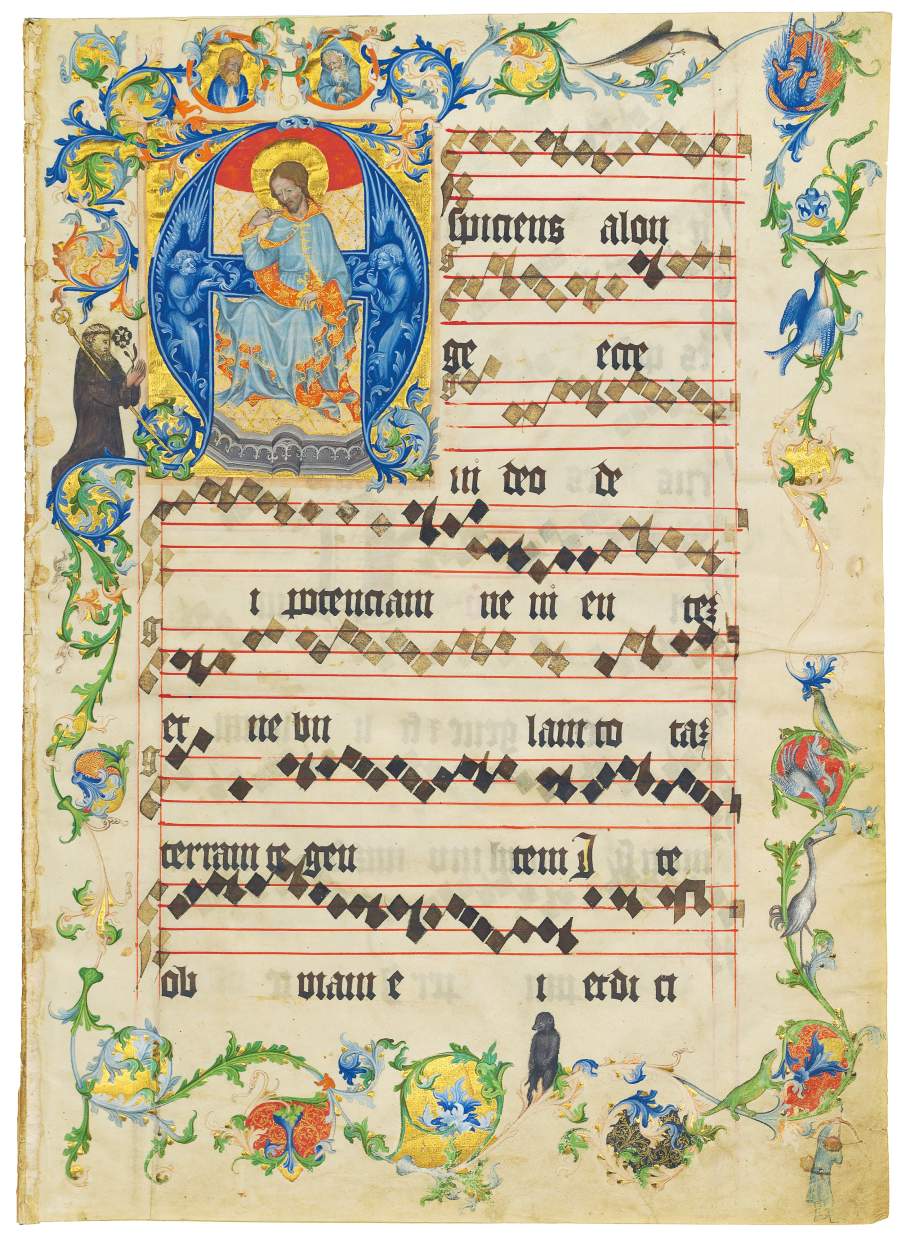 A spiciens alon
ge ecce
ui deo de
i potenciam ue ni en teꝫ
et ne bu lam to taꝫ
terram te gen tem I te
ob uiam e i et di ci